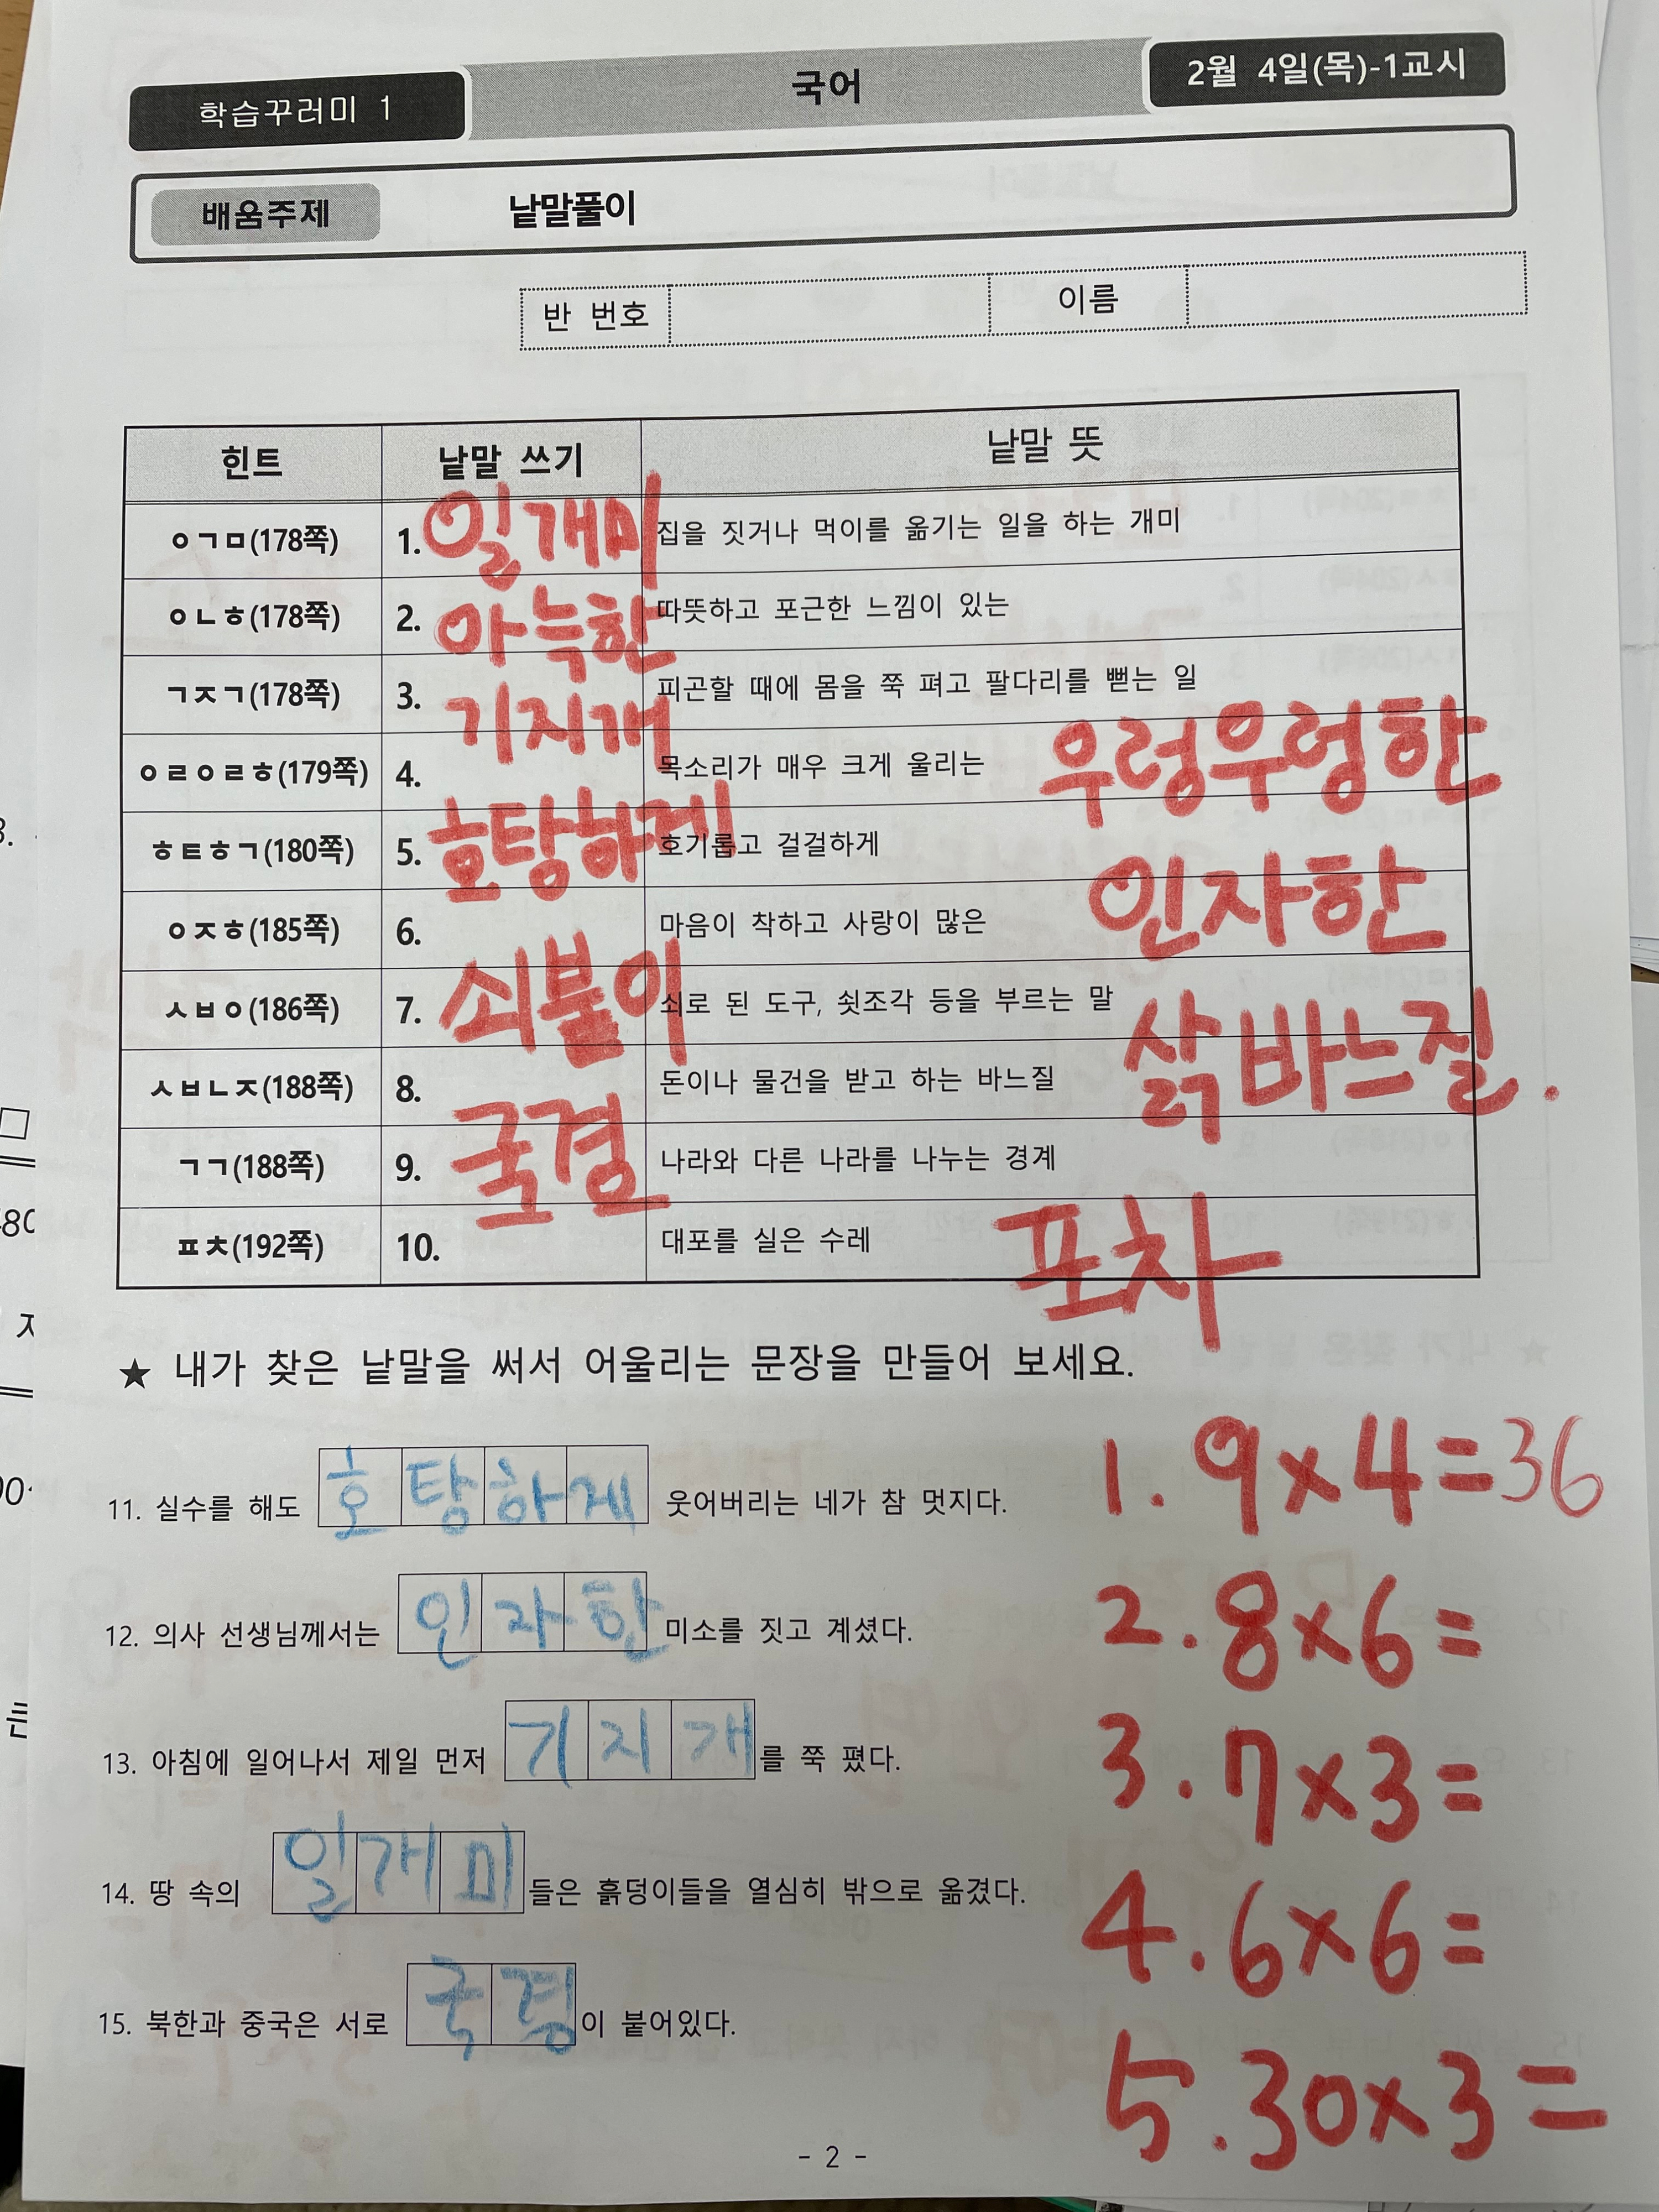 학습꾸러미 1 국어 2월 4일(목)-1교시
배움주제 낱말풀이
반 번호 이름
힌트 낱말 쓰기 낱말 뜻
ㅇㄱㅁ(178쪽) 1. 일개미 집을 짓거나 먹이를 옮기는 일을 하는 개미
ㅇㄴㅎ(178쪽) 2. 아늑한 따뜻하고 포근한 느낌이 있는
ㄱㅈㄱ(178쪽) 3. 기지개 피곤할 때에 몸을 쭉 펴고 팔다리를 뻗는 일
ㅇㄹㅇㄹㅎ(179쪽) 4. 목소리가 매우 크게 울리는 우렁우렁한
ㅎㅌㅎㄱ(180쪽) 5. 호탕하게 호기롭고 걸걸하게
ㅇㅈㅎ(185쪽) 6. 마음이 착하고 사랑이 많은 인자한
ㅅㅂㅇ(186쪽) 7. 쇠붙이 쇠로 된 도구, 쇳조각 등을 부르는 말
ㅅㅂㄴㅈ(188쪽) 8. 돈이나 물건을 받고 하는 바느질 삵바느질.
ㄱㄱ(188쪽) 9. 국경 나라와 다른 나라를 나누는 경계
ㅍㅊ(192쪽) 10. 대포를 실은 수레 포차
★ 내가 찾은 낱말을 써서 어울리는 문장을 만들어 보세요.
11. 실수를 해도 호탕하게 웃어버리는 네가 참 멋지다.
1. 9×4=36
12. 의사 선생님께서는 인자한 미소를 짓고 계셨다.
2. 8×6=
13. 아침에 일어나서 제일 먼저 기지개를 쭉 폈다.
3. 7×3=
14. 땅 속의 일개미들은 흙덩이들을 열심히 밖으로 옮겼다.
4. 6×6=
15. 북한과 중국은 서로 국경이 붙어있다.
5. 30×3=
- 2 -